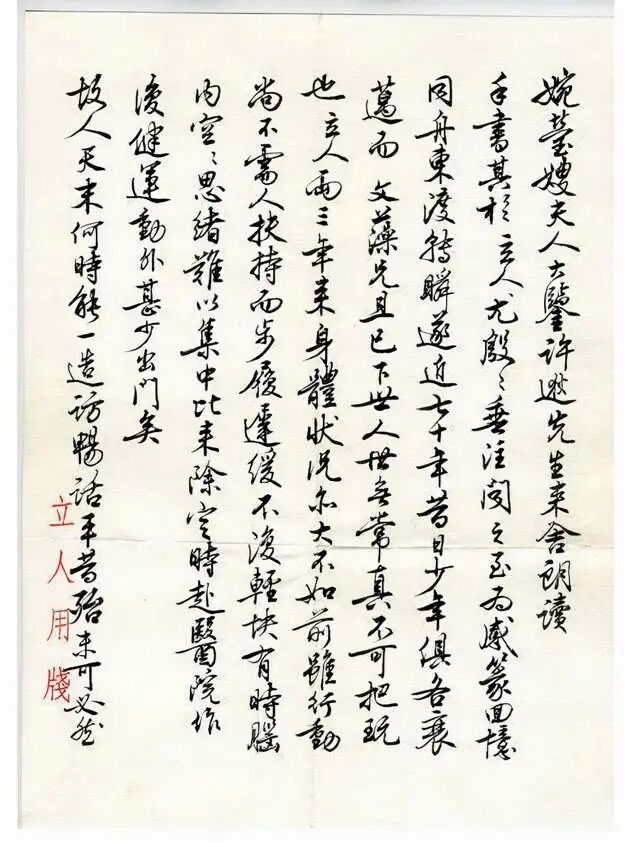 婉瑩嫂夫人大鑒許逖先生來舍朗讀
手書其於 立人尤殷〻垂注聞之至為感篆回憶
同舟東渡轉瞬遂近七十年昔日少年俱各衰
邁而 文藻兄且已下世人世無常真不可把玩
也立人兩三年來身體狀況亦大不如前雖行動
尚不需人扶持而步履遲緩不復輕快有時腦
內空〻思緒難以集中比來除定時赴醫院作
復健運動外甚少出門矣
故人天末何時能一造訪暢話平昔殆未可必然
立人用牋